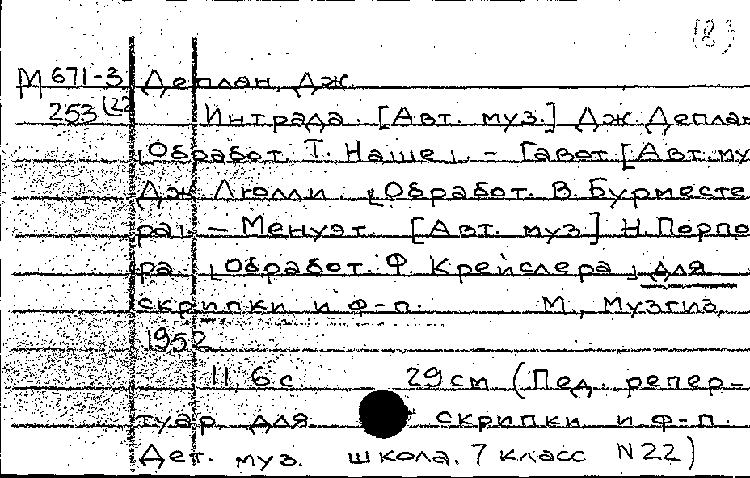 (8)
М 671-3 Деплан, Дж.
253 (22 Интрада. [Авт. муз.] Дж. Деплан
[Обработ. Т. Наше]. - Гавот. [Авт. му
Дж. Люлли. [Обработ. В. Бурместе
ра]. - Менуэт. [Авт. муз.] Н. Порпо
ра. [Обработ. Ф. Крейслера] для
скрипки и ф-п. М., Музгиз,
1952
11, 6 с 29 см (Пед. репер-
туар для скрипки и ф-п.
Дет. муз. школа. 7 класс N 22)